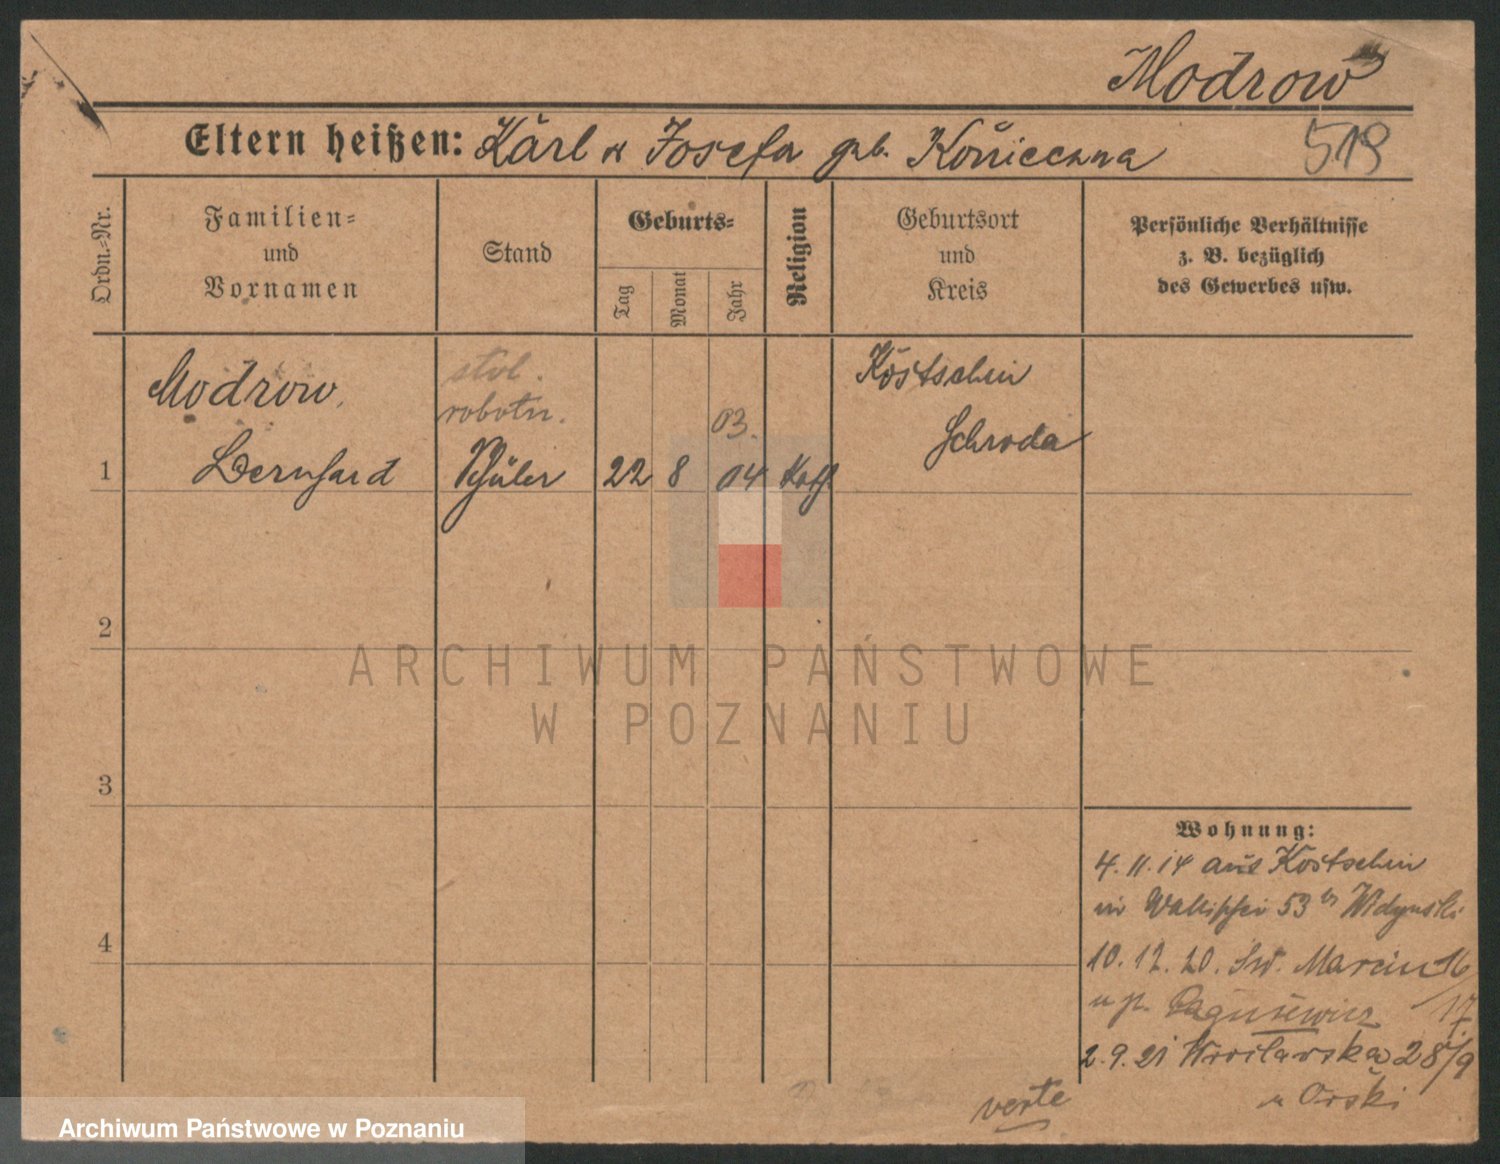 Modrow
Eltern heißen: Karl u Josefa geb. Konieczna
519
Ordn.-Nr.
Familien=
und
Vornamen
Stand
Geburts=
Tag
Monat
Jahr
Religion
Geburtsort
und
Kreis
Persönliche Verhältnisse
z. B. bezüglich
des Gewerbes usw.
Modrow
stol.
robotn.
Kostschin
03.
Schroda
1
Bernhard
Schüler
22
8
04
Kath
2
ARCHIWUM PAŃSTWOWE
W POZNANIU
3
Wohnung:
4.11.14 aus Kostschin
in Wallischei 53 Widynski
4
10.12.20. Św. Marcin 16/17.
u p.
2.9.21 Wrocławska 28/9
u Orski
verte
Archiwum Państwowe w Poznaniu